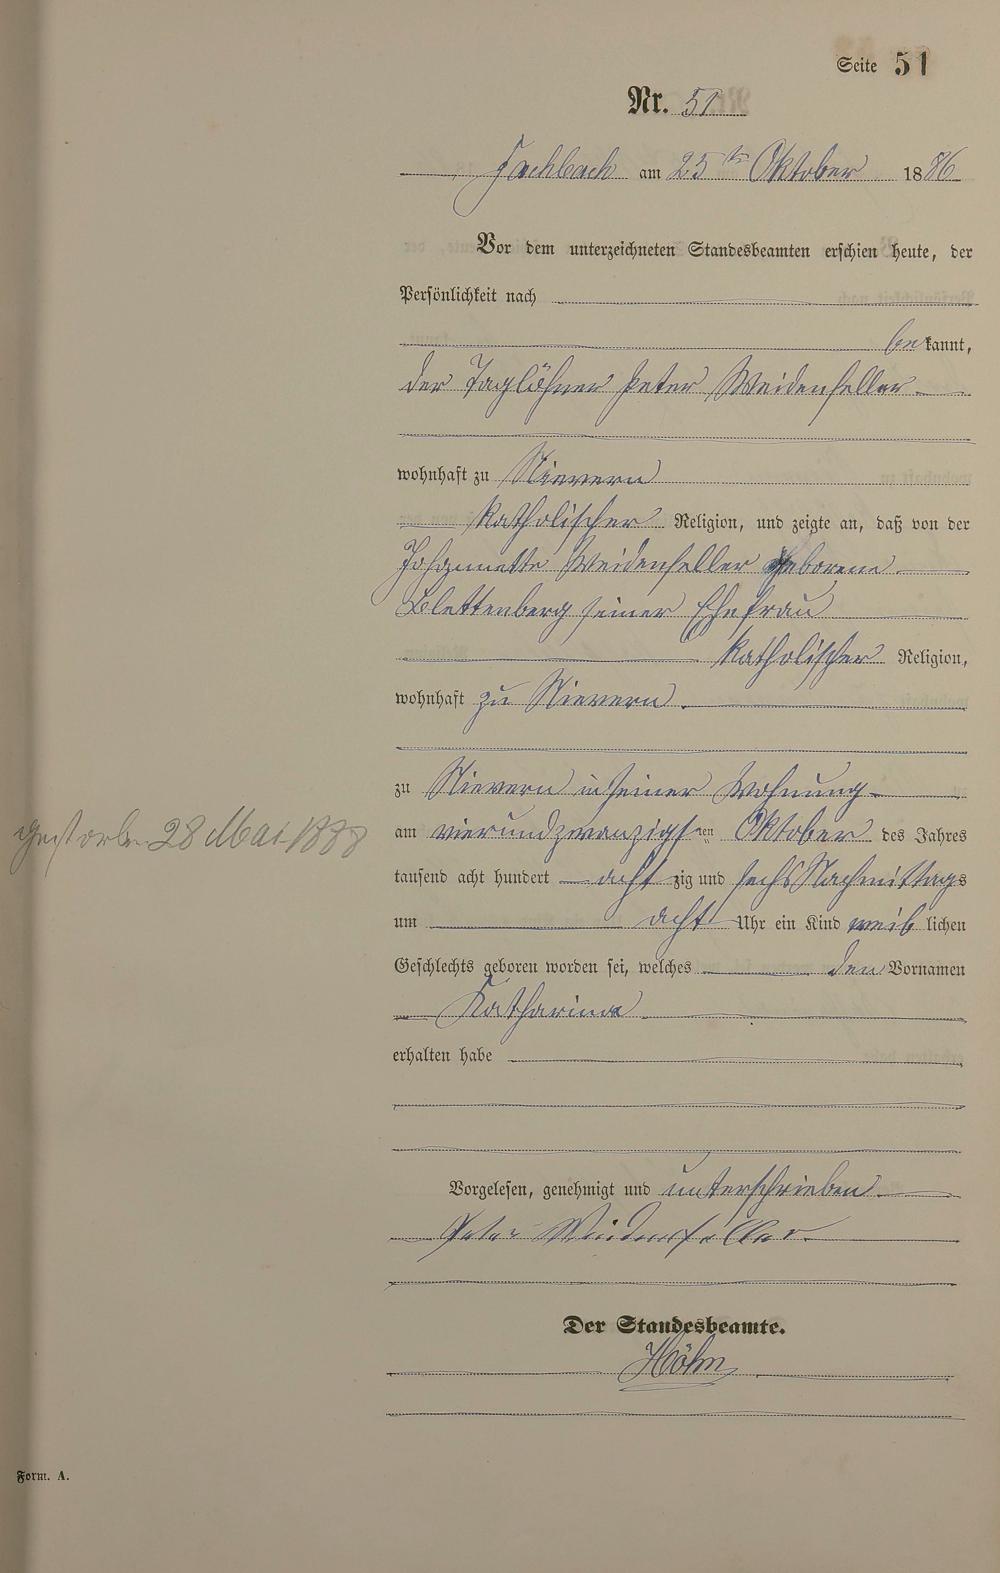 Seite 51
Nr. 51
Fachbach am 25ten Oktober 1886
Vor dem unterzeichneten Standesbeamten erschien heute, der
Persönlichkeit nach
bekannt,
der Taglöhner Peter Weidenfeller
wohnhaft zu Nievern
katholischer Religion, und zeigte an, daß von der
Johannette Weidenfeller geborene
Blettenberg seiner Ehefrau
katholischer Religion,
wohnhaft zu Nievern
zu Nievern in seiner Wohnung
am vierundzwanzigsten Oktober des Jahres
tausend acht hundert acht zig und sechs Nachmittags
um acht Uhr ein Kind weiblichen
Geschlechts geboren worden sei, welches den Vornamen
Katharina
erhalten habe
Vorgelesen, genehmigt und unterschrieben
Peter Weidenfeller
Der Standesbeamte.
Höhn
gestorben 28 Mai 1888
Form. A.